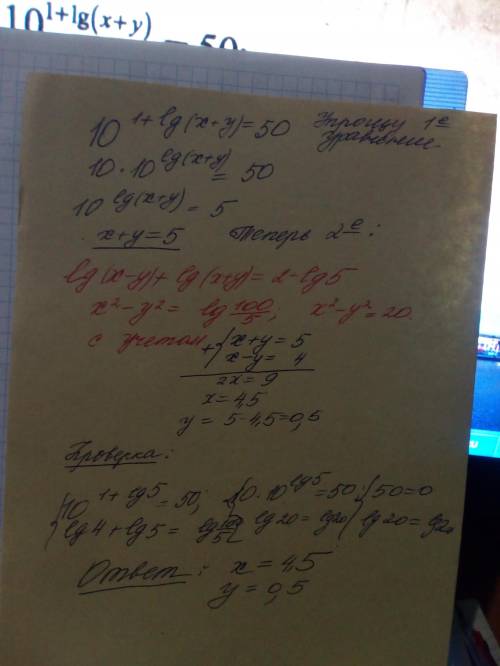 10^{1+lg(x+y)} = 50;
10^{1+lg(x+y)} = 50 Упрощу 1е уравнение
10·10^{lg(x+y)} = 50
10^{lg(x+y)} = 5
x+y=5 Теперь 2е:
lg(x-y)+lg(x+y)=2-lg5
x²-y²= lg 100/5; x²-y²=20
с учетом { x+y = 5
+ { x-y= 4
2x=9
x=4,5
y = 5-4,5=0,5
Проверка:
{ 10^{1+lg5} = 50; { 10·10^{lg5} = 50; { 50=0
{ lg4+lg5 = lg 100/5 { lg20= lg20 { lg20= lg20
Ответ: x=4,5
y=0,5